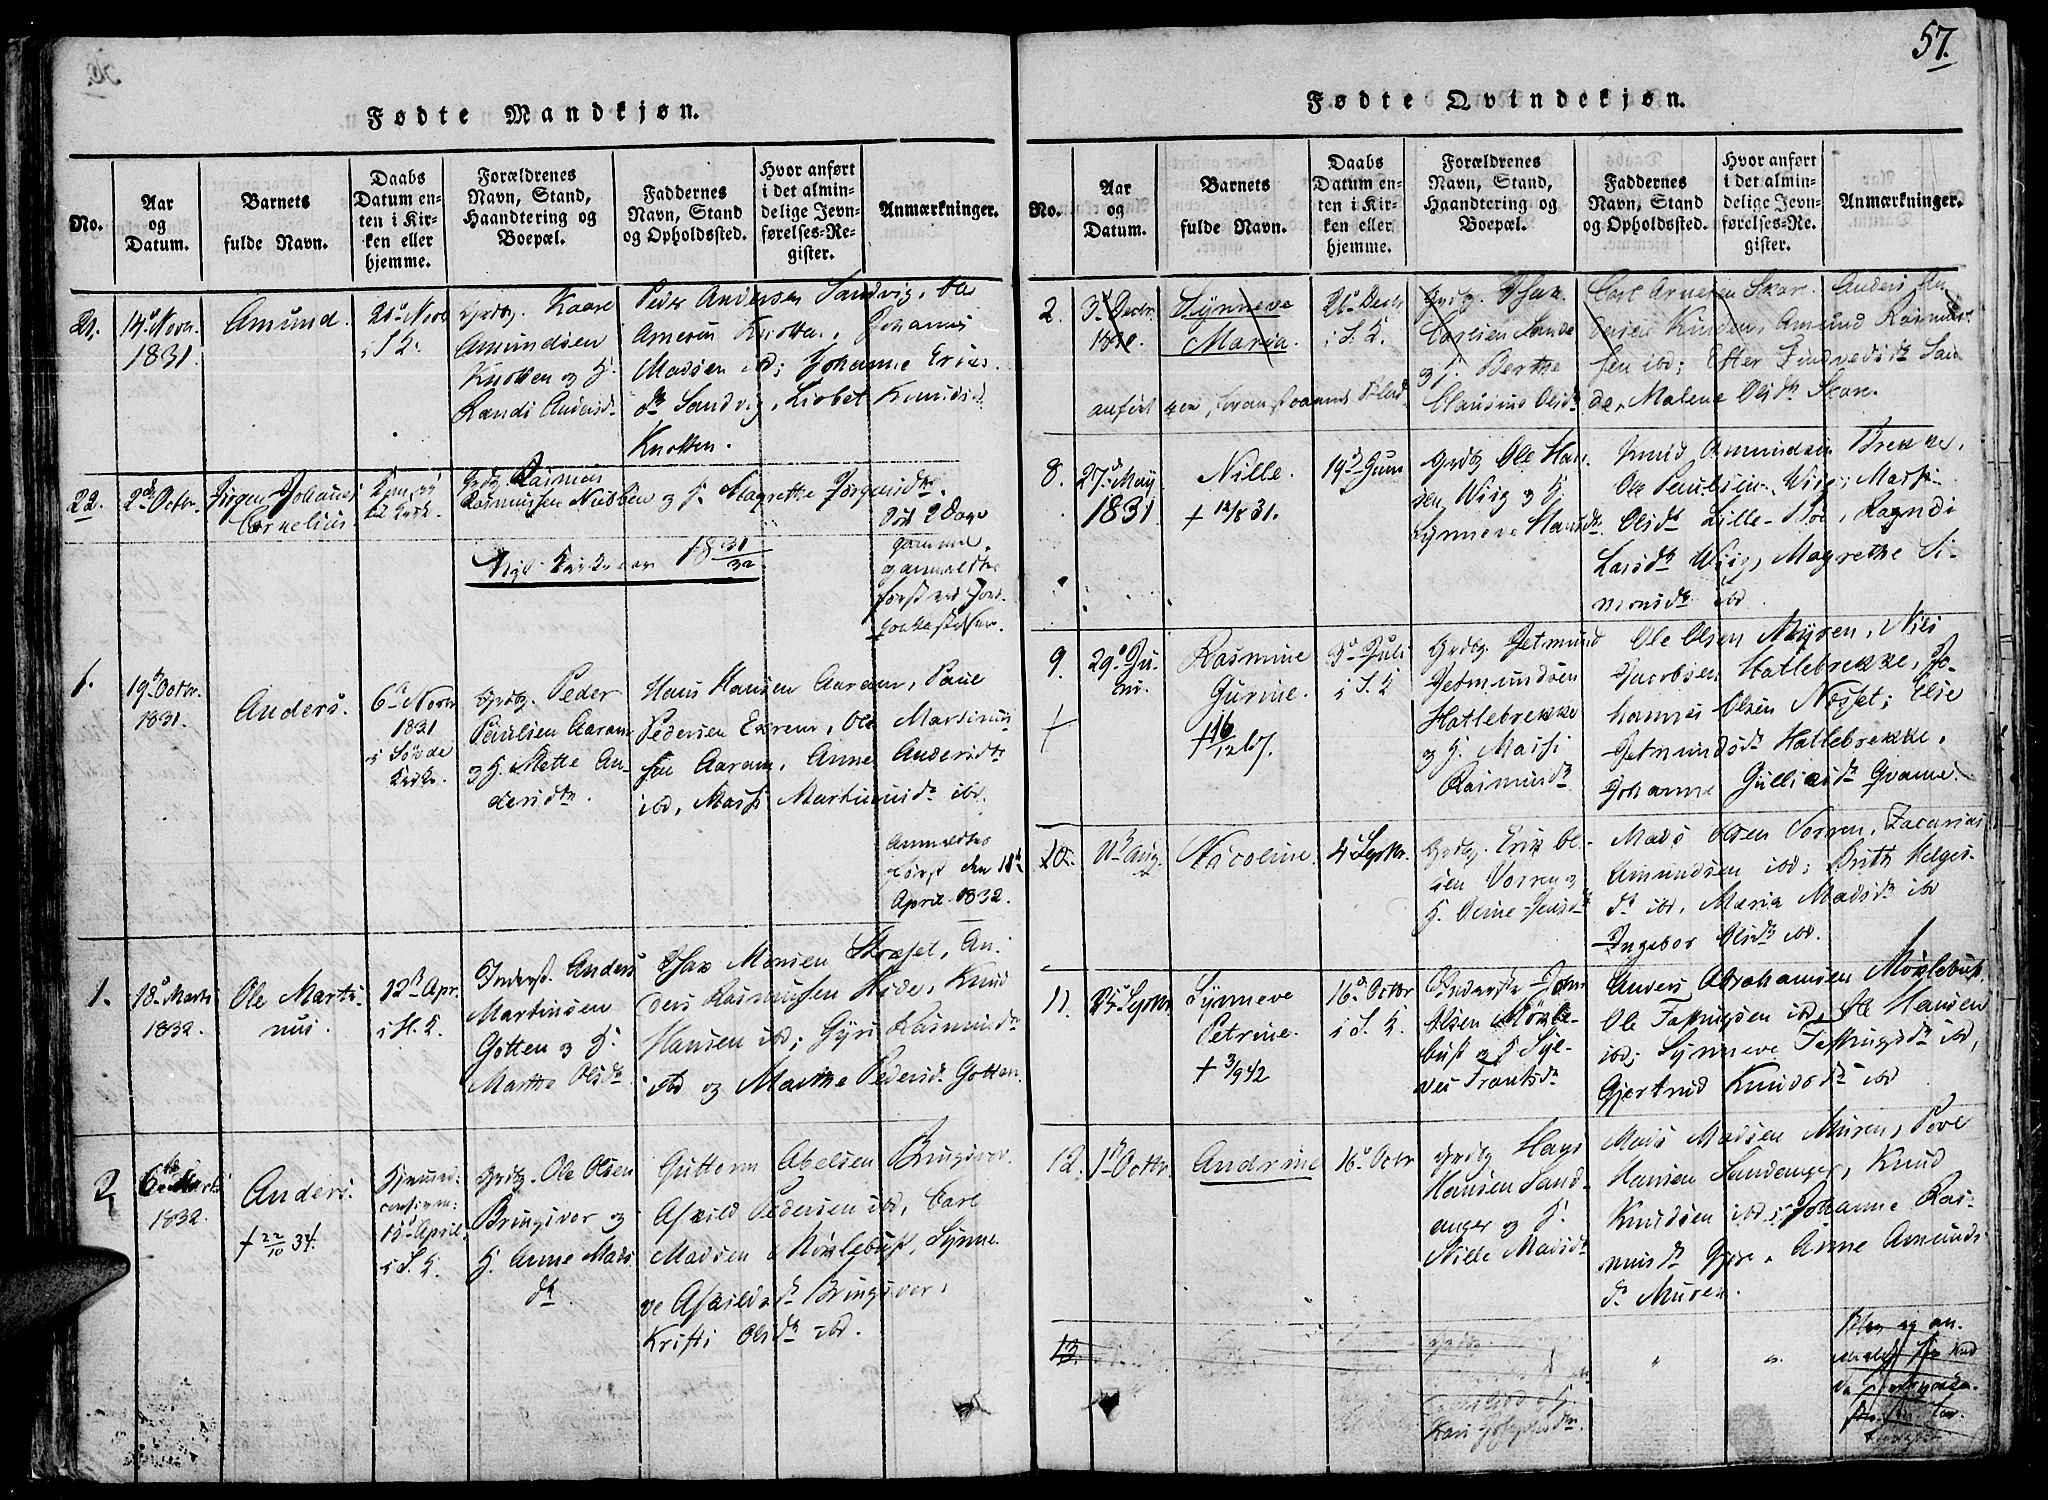 57.
Fødte Mandkjøn.
No.
Aar
og
Datum.
Barnets
fulde Navn.
Daabs
Datum en-
ten i Kir-
ken eller
hjemme.
Forældrenes
Navn, Stand,
Haandtering og
Boepæl.
Faddernes
Navn, Stand
og Opholdssted.
Hvor anført
i det almin-
delige Jevn-
førelses-Re-
gister.
Anmærkninger.
21.
14de Novr.
1831.
Amund.
Grdbr. Kaare
Amundsen
Knotten og H.
Randi Andersdr.
Peder Andersen Sandvig, Ole
Knotten, Johannes
Madsen ibd; Johanne Erics
dr Sandvig, Lisbet Knudsdr
Knotten.
22.
2den Octbr.
Jørgen Johannes
Cornelius.
Rasmus
Rasmussen Nubben og H. Magrethe Jørgensdtr.
død 2 Dage
gammel
og anmeldtes
først ved Jord-
paakastelsen.
Nyt Kirkeaar 1831/32
1.
19de Octbr.
1831.
Anders.
6te Novbr
1831
i Søvde
Kirke.
Grdbr. Peder
Paulsen Aaram
og H. Mette An-
dersdtr.
Hans Hansen Aaram, Paul
Pedersen Ekrem, Ole Martinus-
sen Aaram, Anne Andersdtr
ibd, Massi Martinusdr ibd.
Anmeldtes
først den 18de
April 1832.
1.
18de Marts
1832.
Ole Marti-
nus.
12te Apr.
i H. K.
Inderst. Anders
Martinsen
Gotten og H.
Marthe Olsdr.
Isak Monsen Thræset, An-
ders Rasmussen Eide, Knud
Hansen ibd; Gyri Rasmusdr
ibd og Marthe Pedersdr Gotten.
2.
6te Marts
1832.
Anders.
† 22/10 34.
15de April,
i S. K.
Grdbr. Ole Olsen
Bringsvor og
H. Anne Mads
dr.
Guttorm Abelsen Bringsvor.
Askild Pedersen ibd, Carl
Madsen Møklebust, Synne-
ve Askildsdr Bringsvor,
Kristi Olsdr ibd.
Fødte Qvindekjøn.
No.
Aar
og
Datum.
Barnets
fulde Navn.
Daabs
Datum en-
ten i Kir-
ken eller
hjemme.
Forældrenes
Navn, Stand,
Haandtering og
Boepæl.
Faddernes
Navn, Stand
og Opholdssted.
Hvor anført
i det almin-
delige Jevn-
førelses-Re-
gister.
Anmærkninger.
2.
3de Decbr.
Synneve
Maria.
26de Decbr
i S. K.
Grdbr. Isak
Carlsen Sande
og H. Berthe
Clausine Olsdr
Carl Arnesen Skor. Anders An-
dersen Kinden, Amund Rasmus-
sen ibd; Ester Findvedsdr San-
de, Malene Olsdr Skare.
8.
27de May
1831.
Nille.
† 12/8 31.
19de Juni
Grdbr Ole Han-
sen Wiig og H.
Synneve Hansdr.
Knud Amundsen Brekke,
Ole Paulsen Wiig; Massi
Olsdr Lille-Bøe, Ragndi
Larsdr Wiig, Magrethe Si-
monsdr ibd.
9.
29de Ju-
ni.
Rasmine
Gurine.
† 16/12 67.
3de Juli
i S. K
Grdbr. Jetmund
Jetmundsen
Hatlebrekke
og H. Massi
Rasmusdr
Ole Olsen Myren, Nils
Jacobsen Hatlebrekke, Jo-
hannes Olsen Nosset; Else
Jetmundsdr Hatlebrekke,
Johanne Gulliksdr Qvame.
10.
11te Aug.
Nicoline.
4de Septbr.
Grdbr. Erik Ol-
sen Vorren og
H. Oline Jensdr
Mads Olsen Vorren, Zacarias
Amundsen ibd; Brith Helges-
dr ibd, Maria Madsdr ibd
Ingebor Olsdr ibd.
11.
25de Septbr
Synneve
Petrine.
† 3/9 42
16de Octbr
i S. K.
Inderste John
Olsen Møkle-
bust og H. Syl-
vei Frantsdr
Anders Abrahamsen Møklebust
Ole Hansen
ibd; Synneve ibd,
Gjertrud Knudsdr ibd
12.
1ste Octbr.
Andrine
16de Octbr
Grdbr Hans
Hansen Sand-
anger og H.
Nille Madsdr
Mads Madsen Muren, Povel
Hansen Sandanger, Knud
Knudsen ibd; Johanne Ras-
musdr Gjøre, Anne Amunds-
dr Muren.
13.
Kari Josephsdtr.